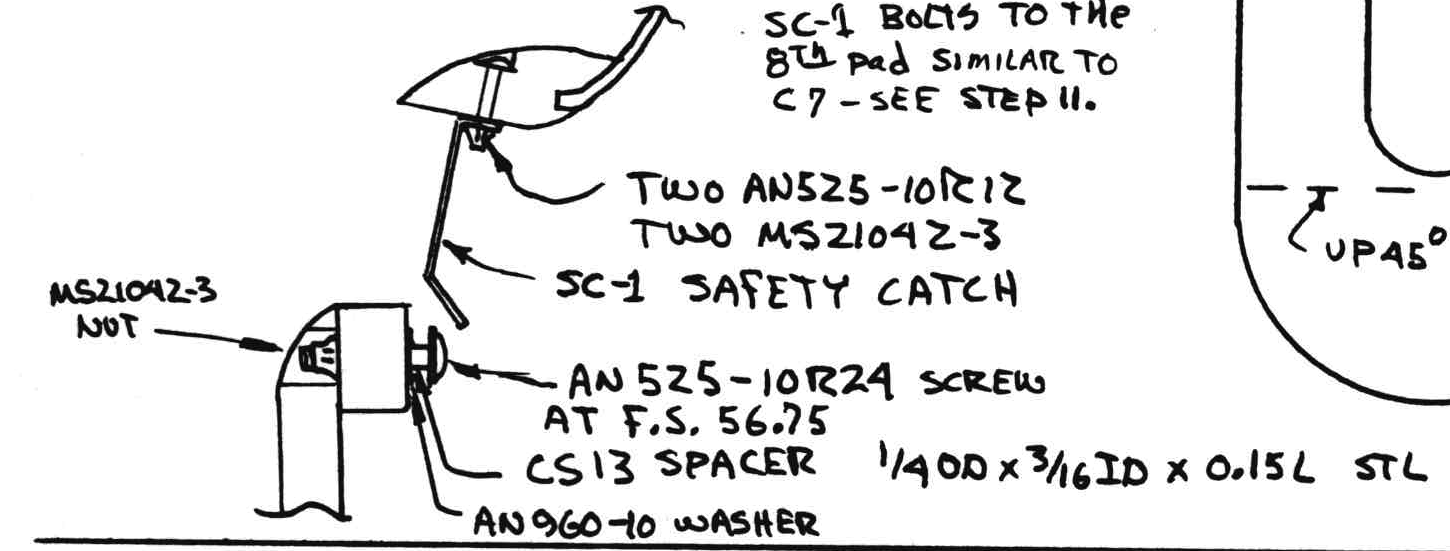 SC-1 BOLTS TO THE
8TH pad SIMILAR TO
C7 - SEE STEP 11.
TWO AN525-10R12
TWO MS21042-3
SC-1 SAFETY CATCH
MS21042-3
NUT
AN 525-10R24 SCREW
AT F.S. 56.75
CS13 SPACER 1/4 OD x 3/16 ID x 0.15L STL
AN960-10 WASHER
UP 45°